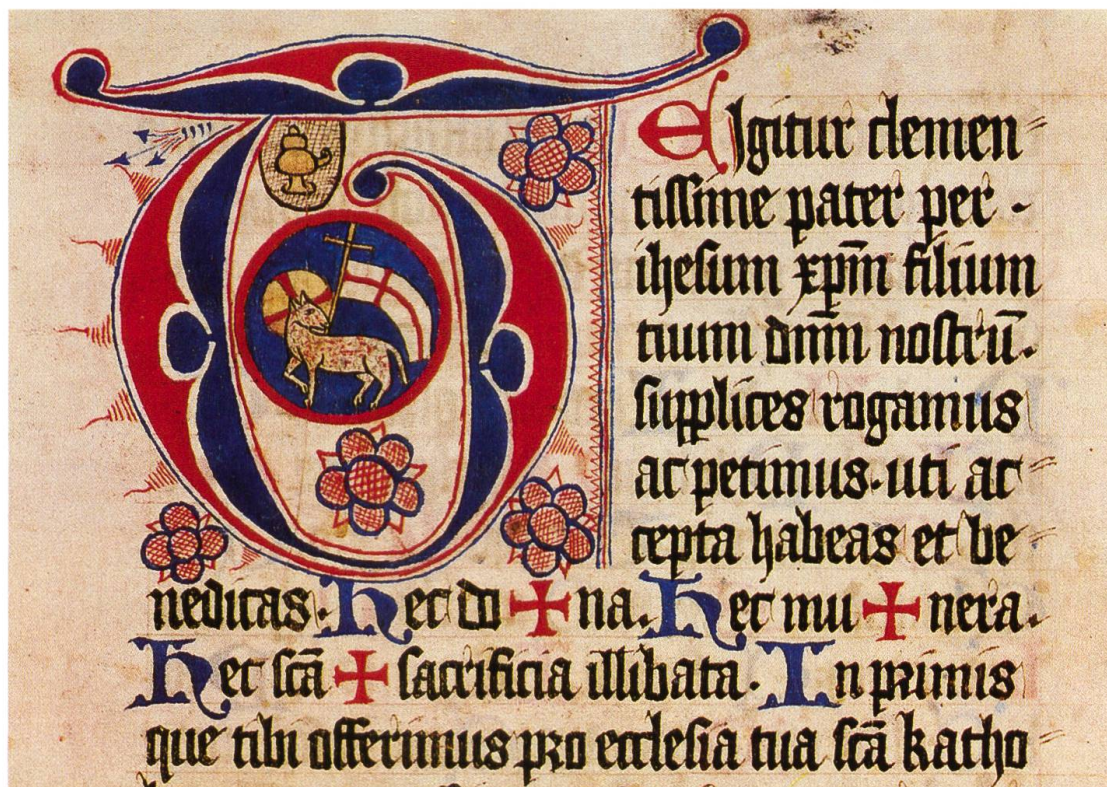 TE Igitur clemen⸗
tissime pater per ·
ihesum xp̅m filium
tuum dn̅m nostru̅.
supplices rogamus
ac petimus. uti ac⸗
cepta habeas et be⸗
nedicas. Hec do ✚ na. Hec mu ✚ nera.
Hec sc̅a ✚ sacrificia illibata. In primis
que tibi offerimus pro ecclesia tua sc̅a katho⸗